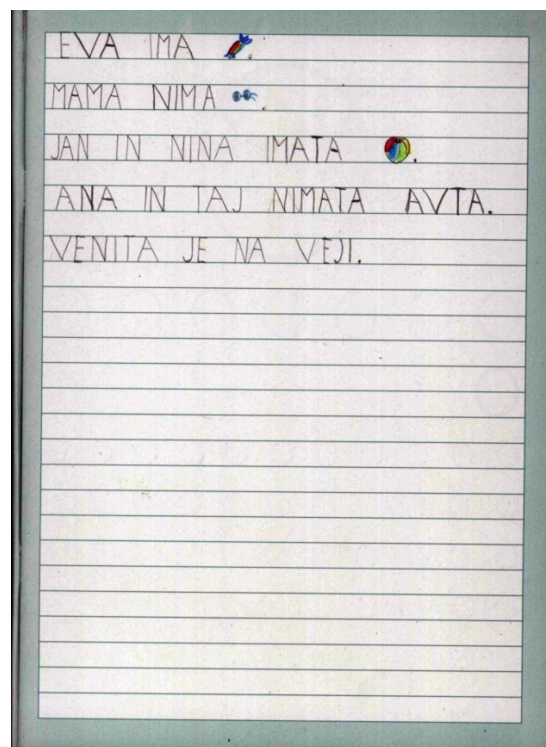 EVA IMA .
MAMA NIMA .
JAN IN NINA IMATA .
ANA IN TAJ NIMATA AVTA.
VENITA JE NA VEJI.